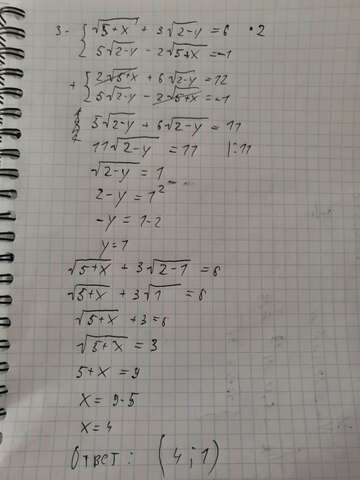 3. { √5+x + 3√2-y = 6 · 2
5√2-y - 2√5+x = -1
+ { 2√5+x + 6√2-y = 12
5√2-y - 2√5+x = -1
5√2-y + 6√2-y = 11
11√2-y = 11 |:11
√2-y = 1
2-y = 1²
-y = 1-2
y = 1
√5+x + 3√2-1 = 6
√5+x + 3√1 = 6
√5+x + 3 = 6
√5+x = 3
5+x = 9
x = 9-5
x = 4
Ответ: (4;1)